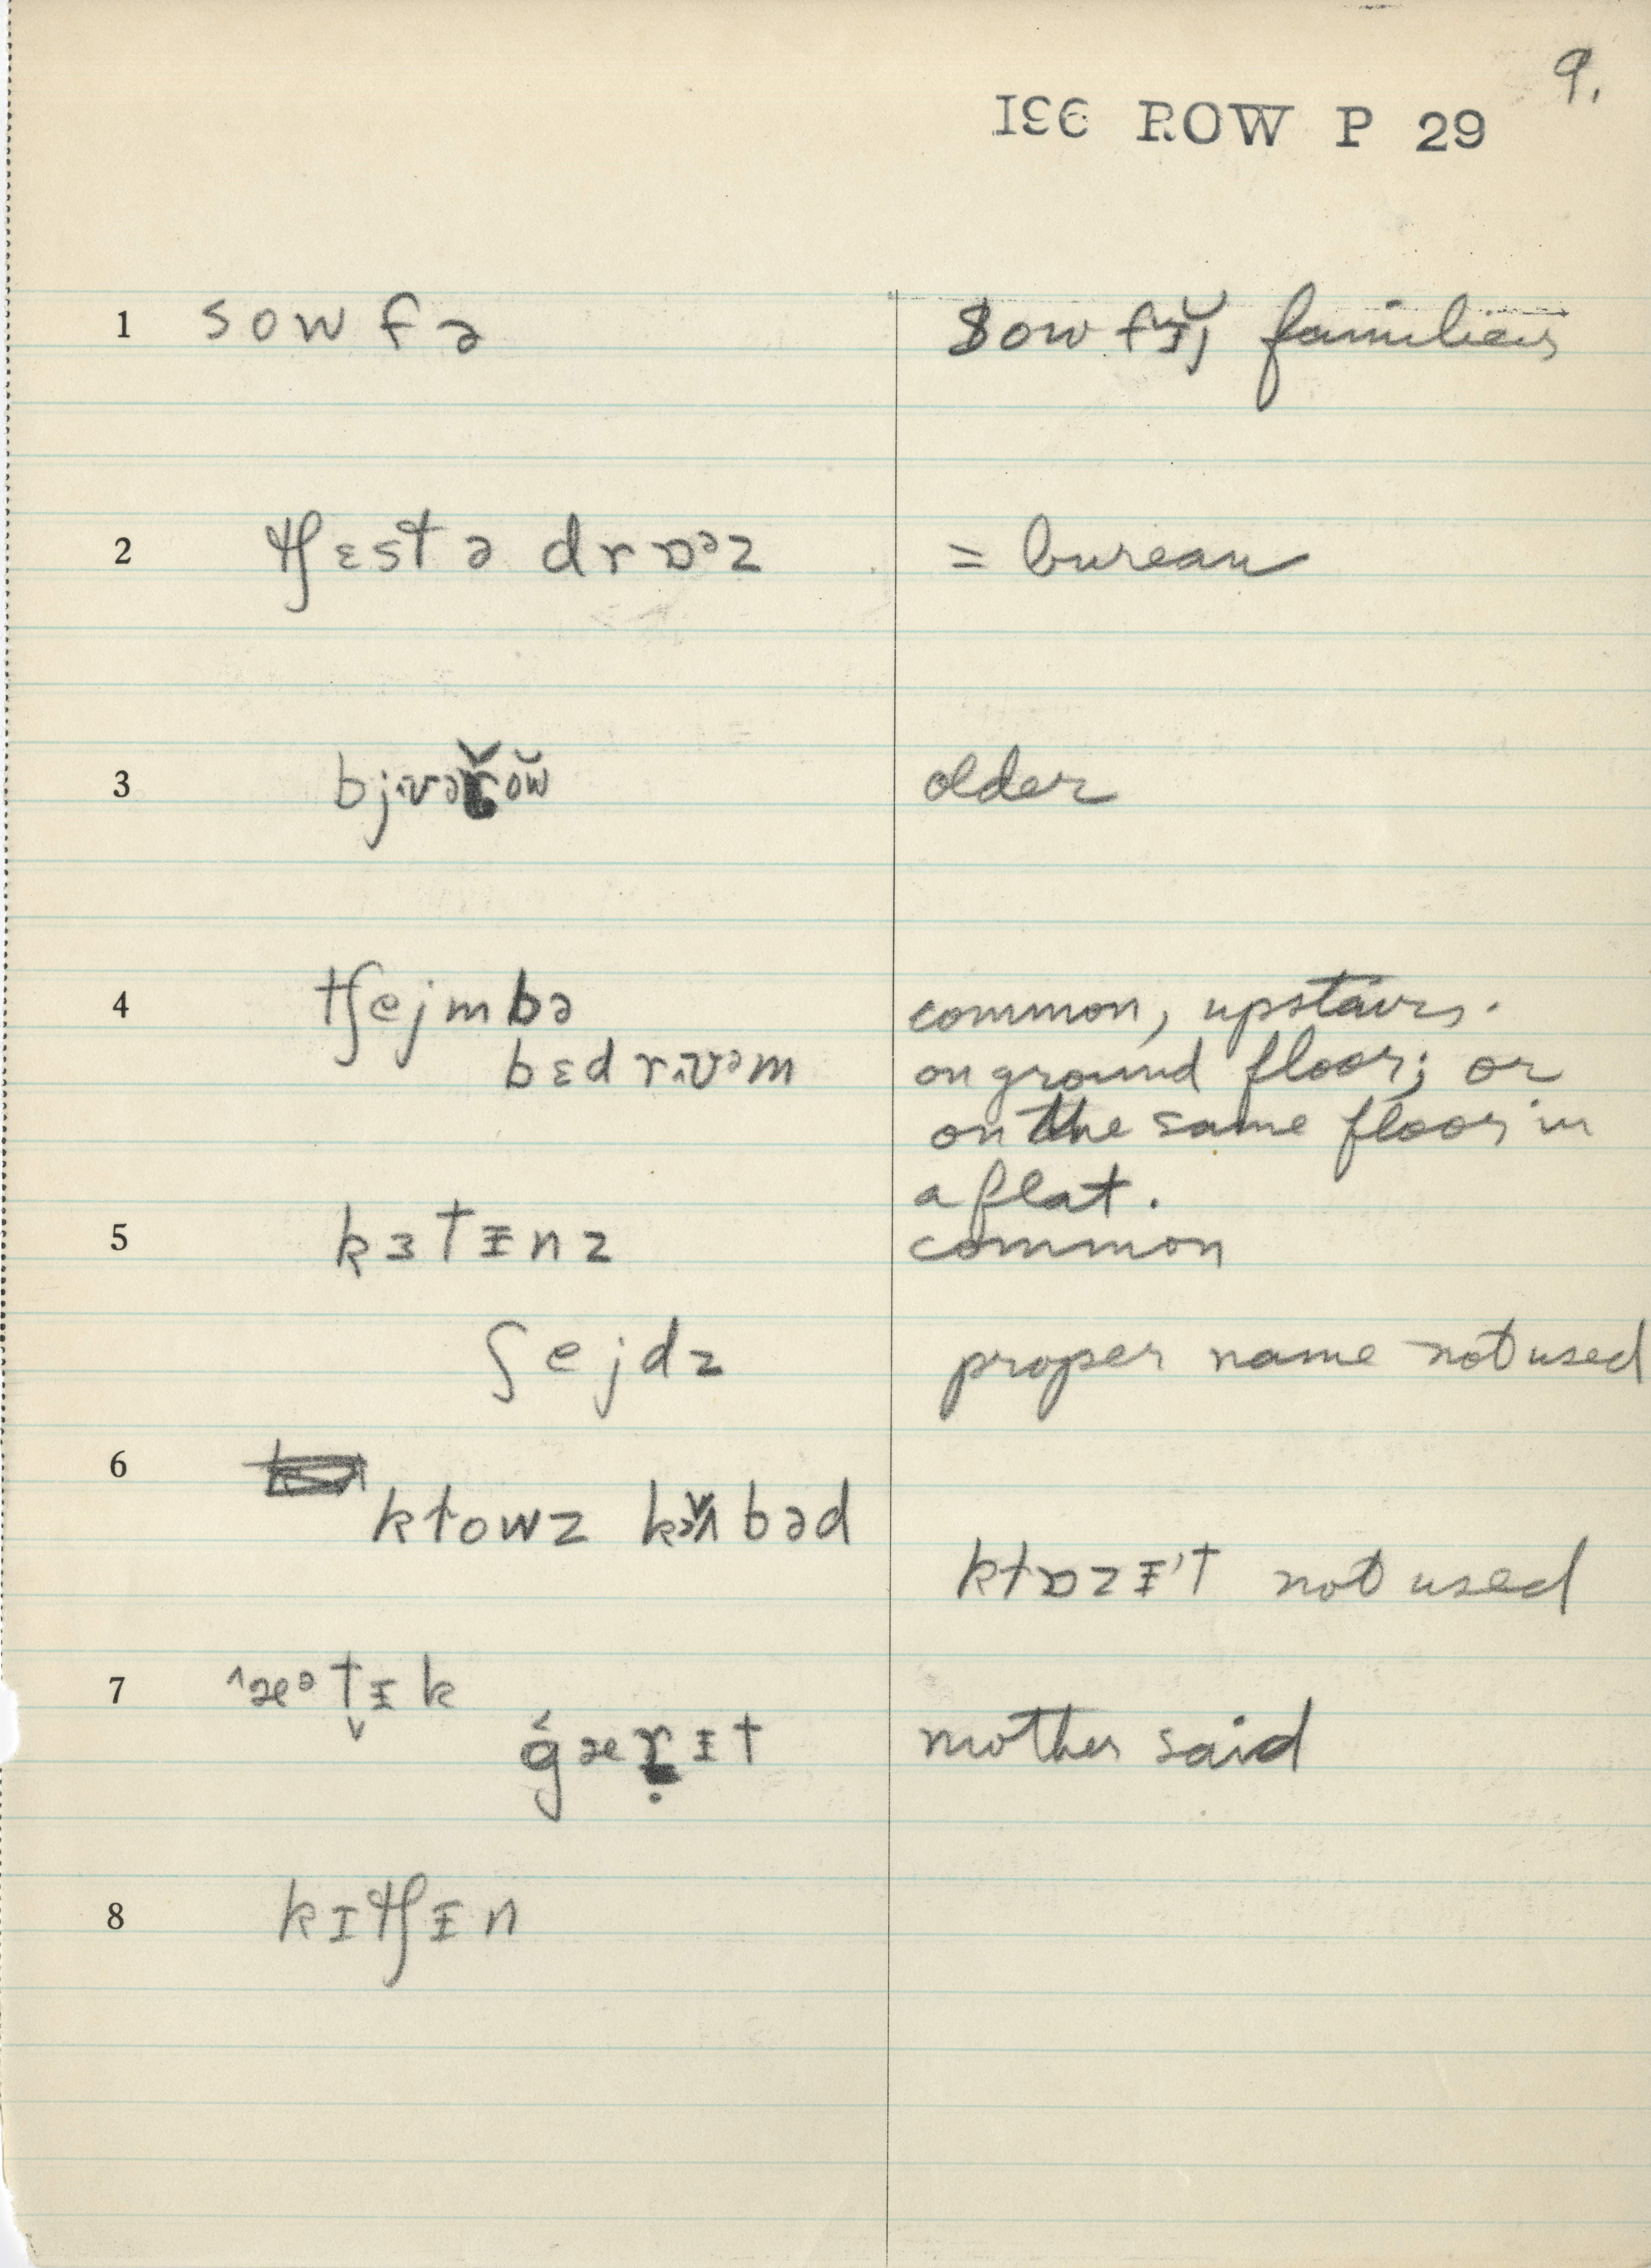 9.
196 ROW P 29
1 sowfə sowfɪ̆j̆ familier
2 tʃɛst ə drɒᵊz = bureau
3 bjʊərow older
4 tʃejmbə common, upstairs.
bɛdrʊᵊm on ground floor; or
on the same floor in
a flat.
5 kɜtɪnz common
ʃejdz proper name not used
6 ktowz kʌbəd
ktɒzɪ't not used
7 ˄æᵊt̬ɪk
gærɪt mother said
8 kɪtʃɪn